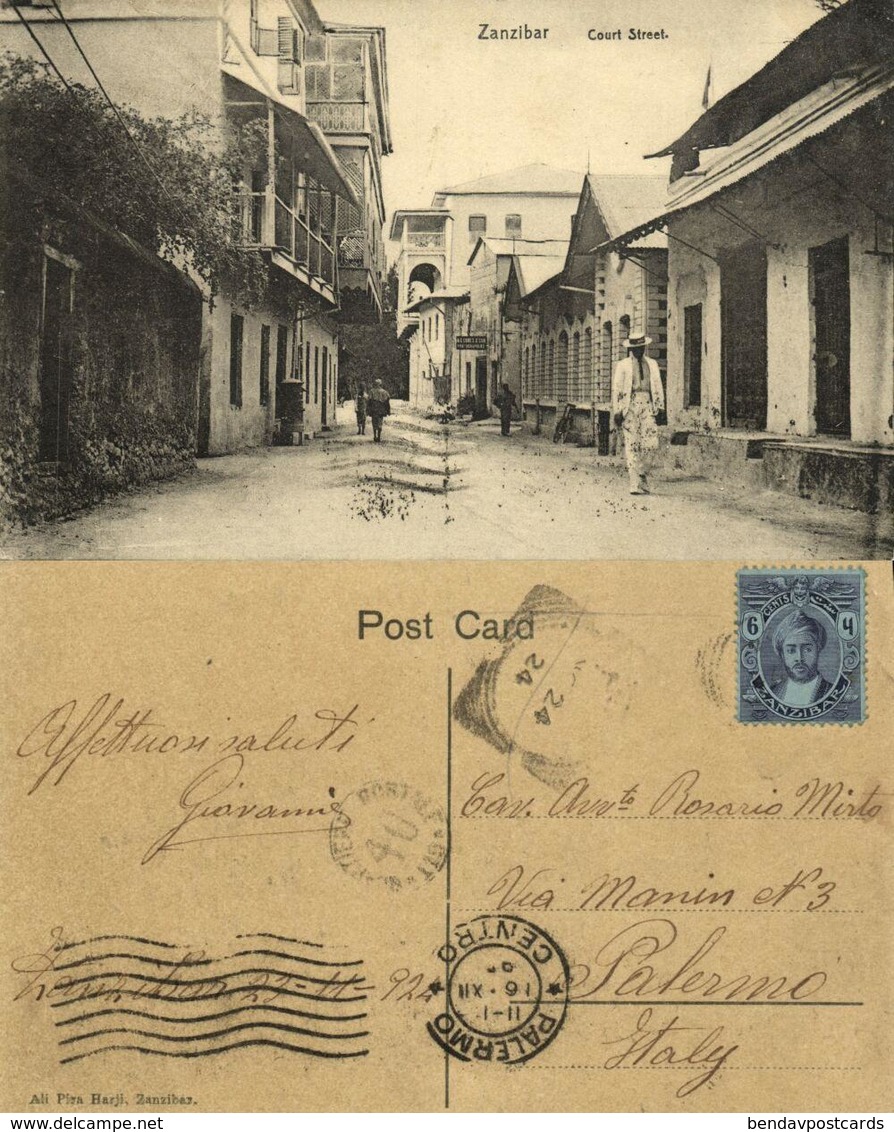 Zanzibar Court Street.
Post Card
6 CENTS
ZANZIBAR
24
24
Affettuosi saluti
Giovanni
Cav. Avvto Rosario Mirto
Via Manin N° 3
Palermo
Italy
Zanzibar 23-11-924
40
PALERMO CENTRO
11-1
16·XII
Ali Pira Harji, Zanzibar.
www.delcampe.net
bendavpostcards